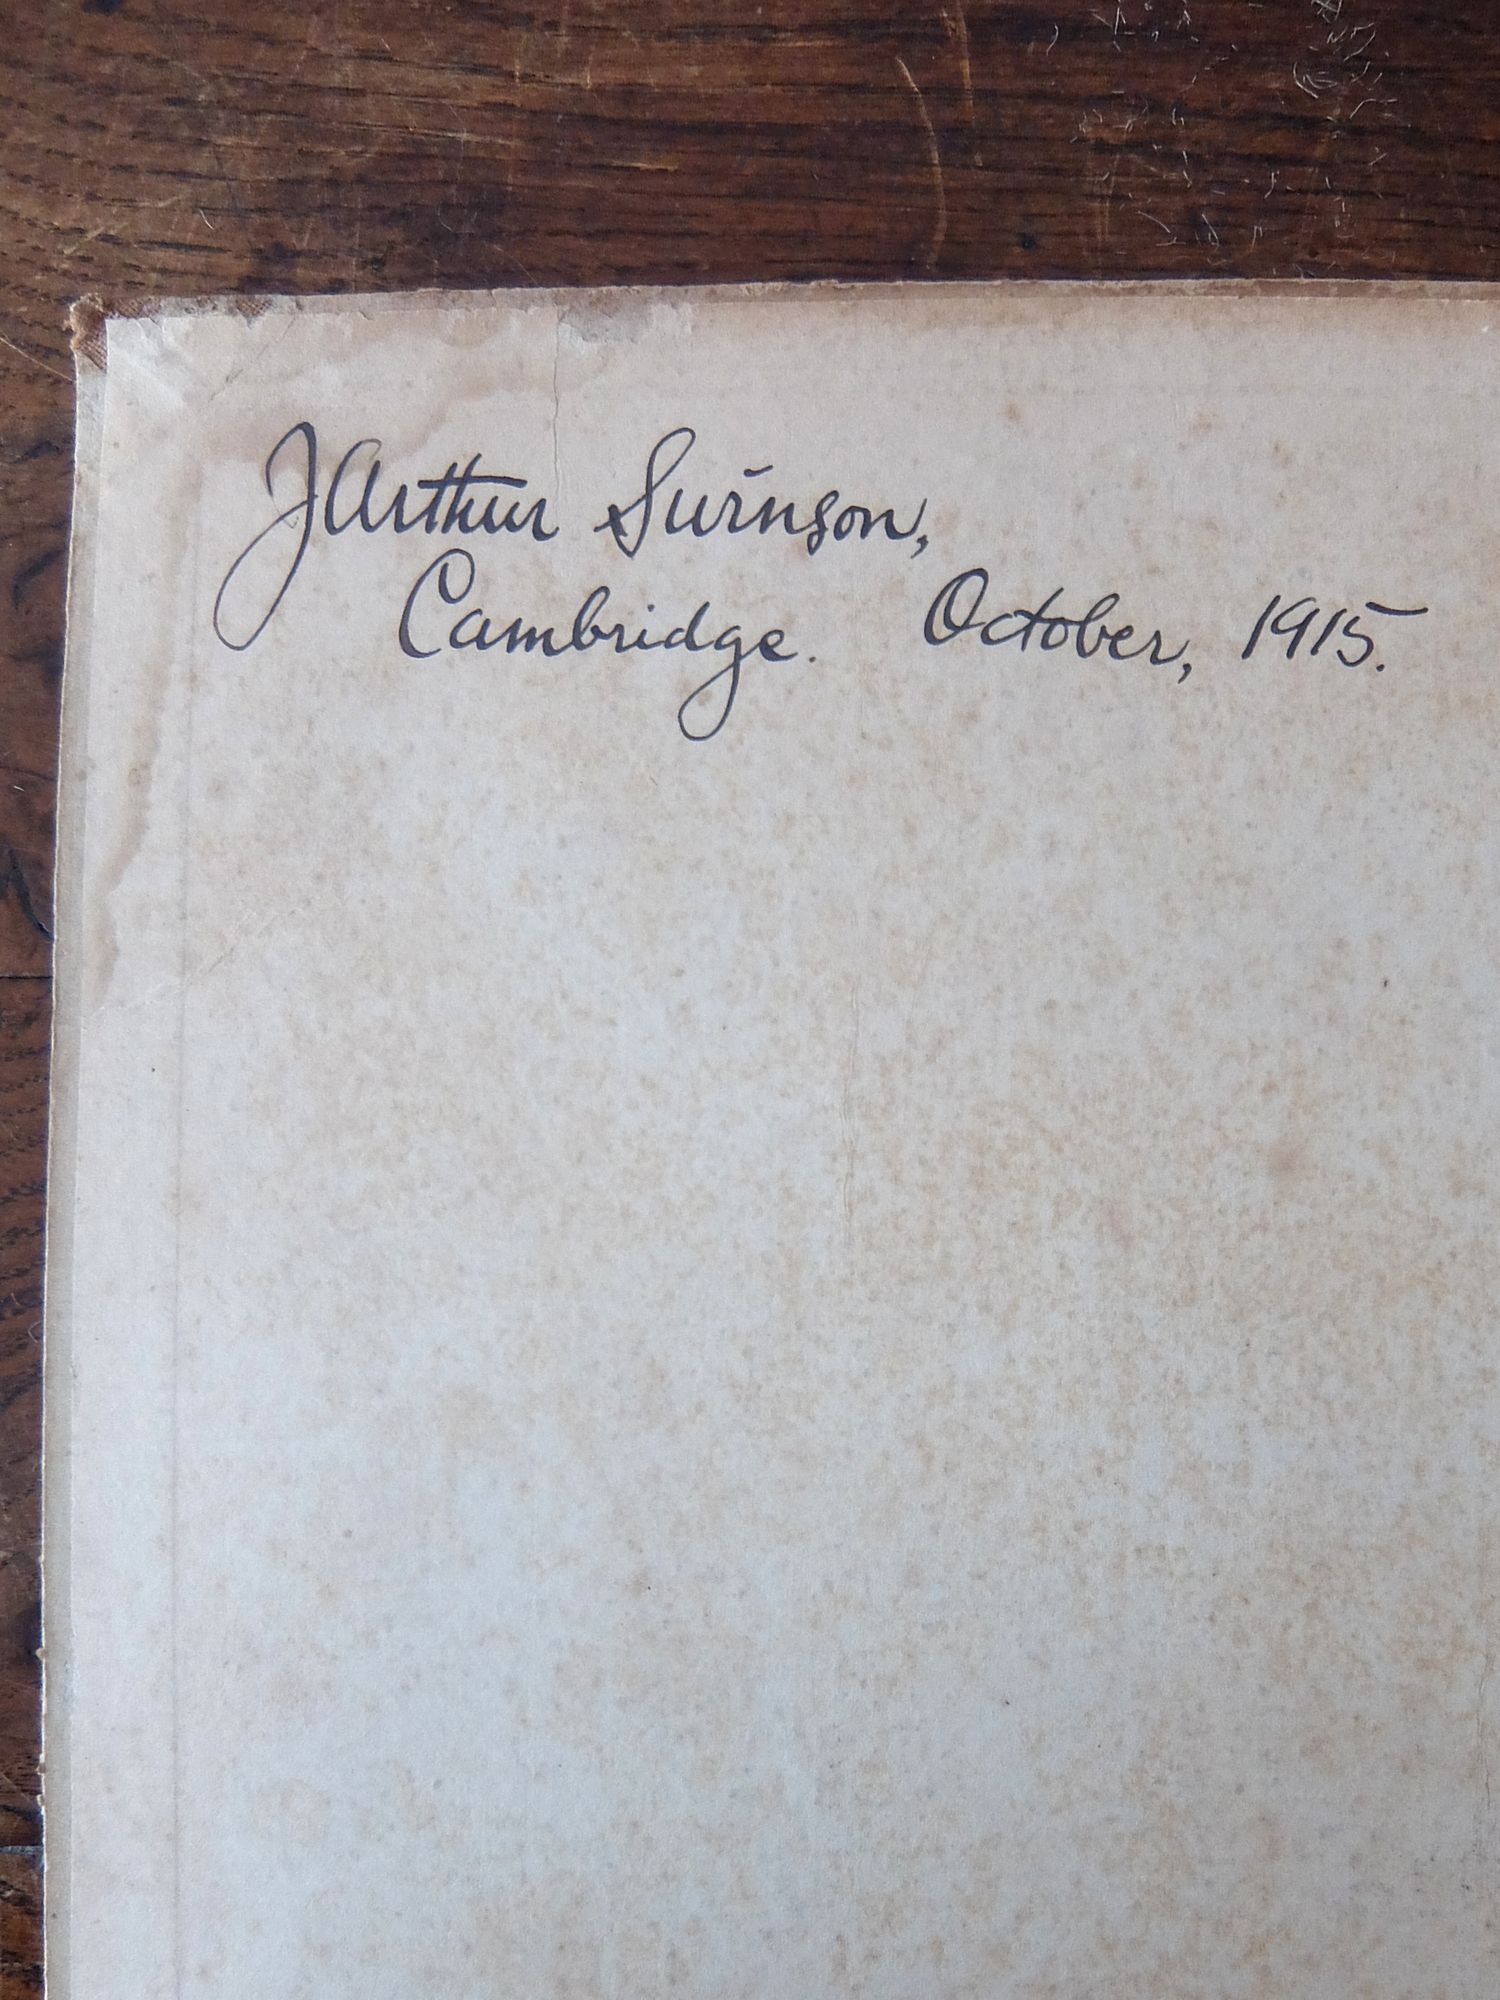 J Arthur Swinson,
Cambridge. October, 1915.